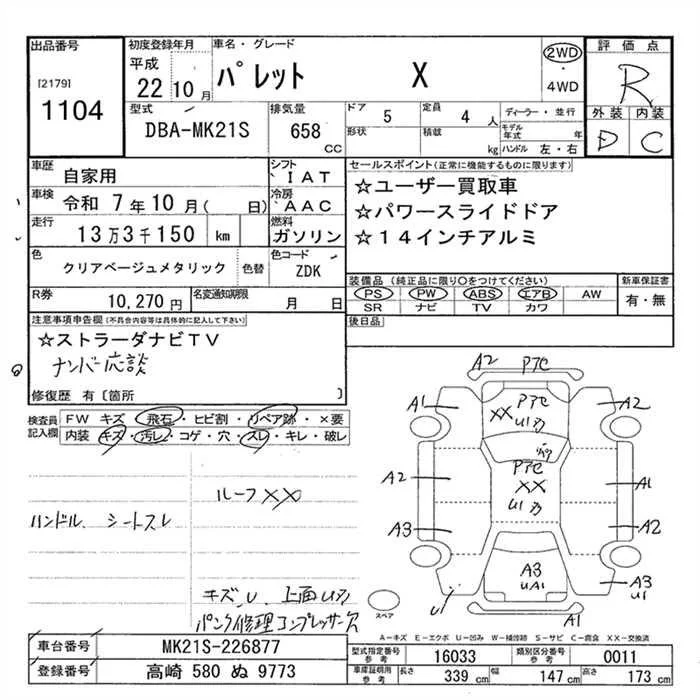 出品番号
[2179]
1104
初度登録年月
平成
22 10 月
車名・グレード
パレット X
2WD
・
4WD
評価点
R
外装 内装
D C
型式
DBA-MK21S
排気量
658
CC
ドア 5
形状
定員 4 人
積載 kg
ディーラー・並行
モデル年式 年
ハンドル 左・右
車歴 自家用
シフト IAT
車検 令和 7年10月( 日)
冷房 AAC
走行 13万3千150 km
燃料 ガソリン
色 クリアベージュメタリック 色替
色コード ZDK
R券 10,270円
名変通知期限 月 日
セールスポイント(正常に機能するものに限ります)
☆ユーザー買取車
☆パワースライドドア
☆14インチアルミ
装備品(純正品に限り○をつけてください)
PS PW ABS エアB AW
SR ナビ TV カワ
新車保証書
有・無
後日品
注意事項申告欄(不具合内容等は具体的に記入して下さい)
☆ストラーダナビTV
ナンバー応談
修復歴 有〔箇所 〕
検査員記入欄
FW キズ・飛石・ヒビ割・リペア跡・×要
内装 キズ・汚レ・コゲ・穴・スレ・キレ・破レ
ルーフXX
ハンドル、シートスレ
キズU 上面Uタ
パンク修理コンプレッサー欠
A2 Pアセ
A1 PアセXX U1タ A2
A2 PアセXX U1タ A1
A3 A2
A3 UA1 A3 U1
A1
スペア
A-キズ E-エクボ U-凹み W-補修跡 S-サビ C-腐食 XX-交換済
車台番号 MK21S-226877
登録番号 高崎 580 ぬ 9773
型式指定番号 参考 16033
類別区分番号 参考 0011
車庫証明用 参考 長さ 339 cm 幅 147 cm 高さ 173 cm